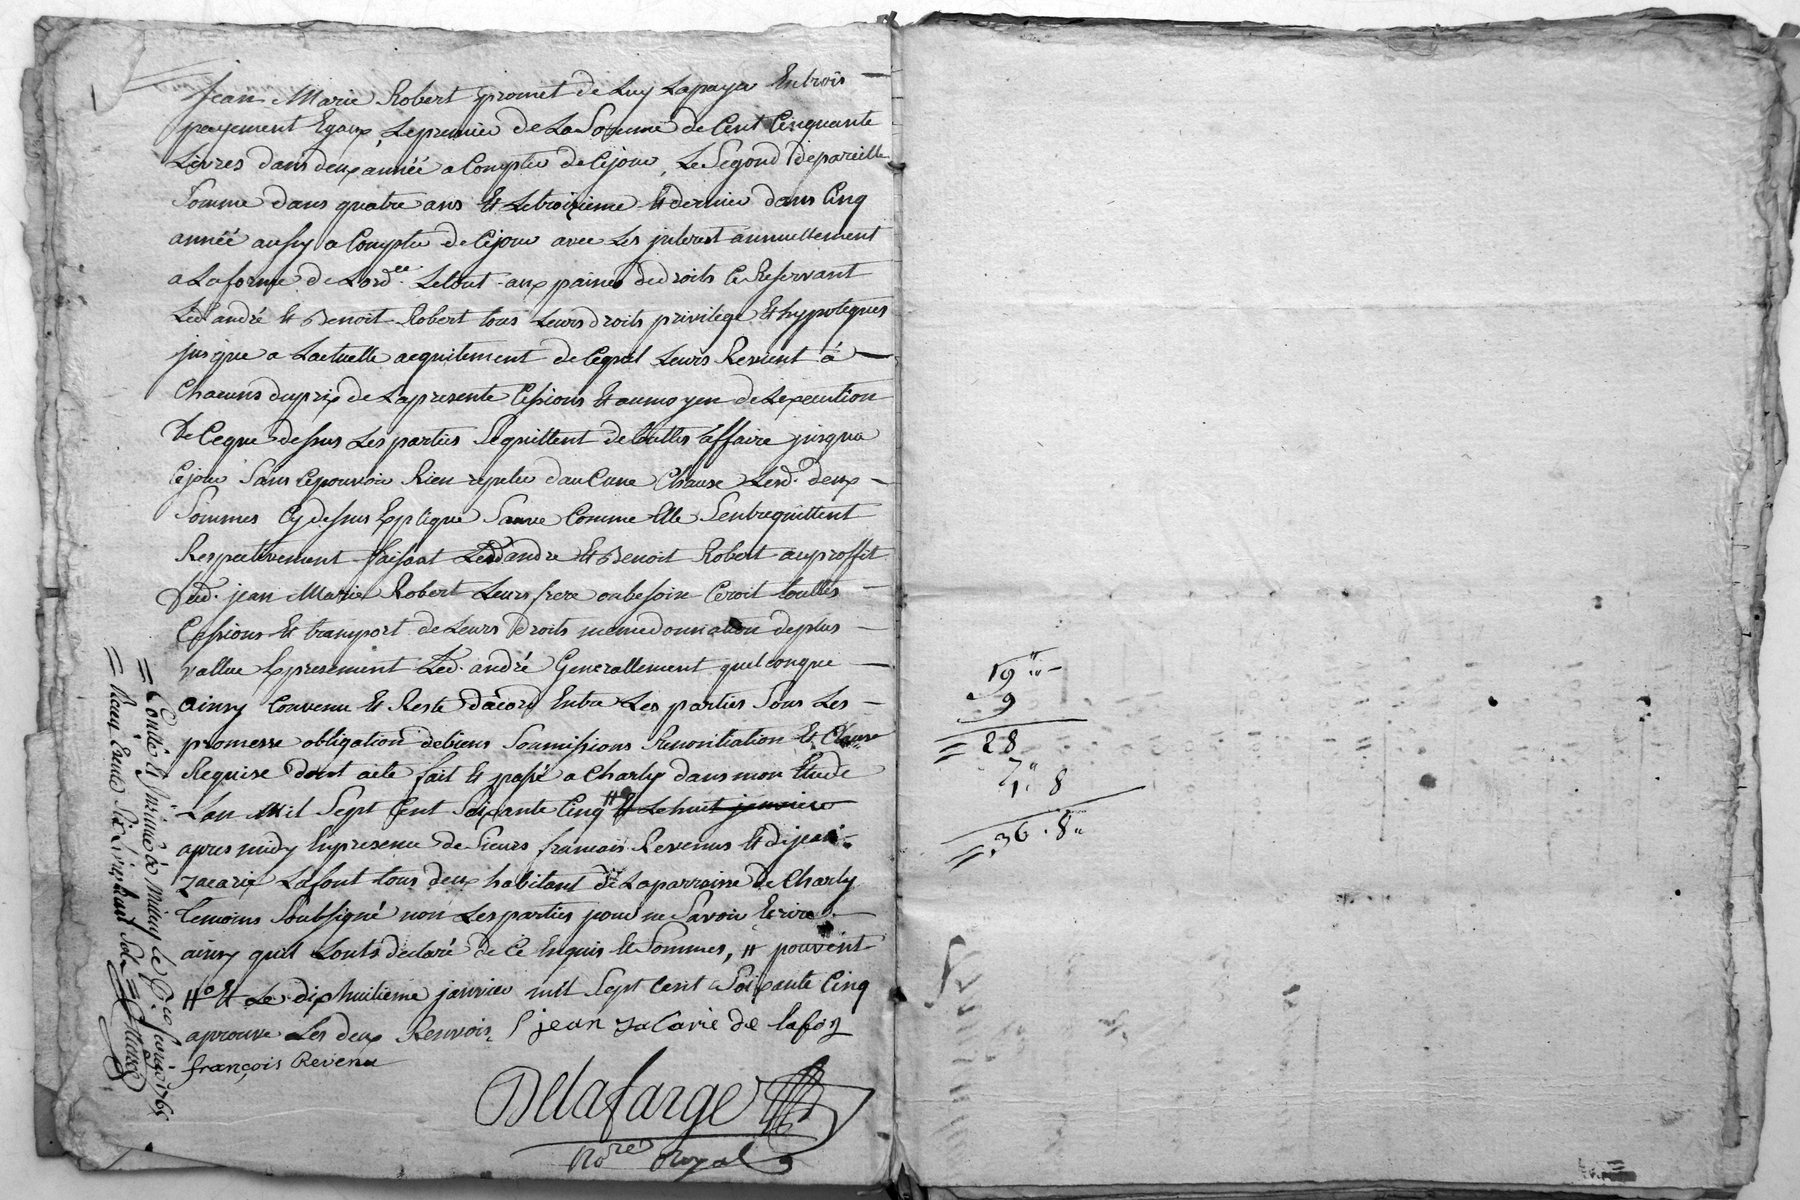 Jean Marie Robert promet de Luy Lapayer Entrois
payement Egaux, Lepremier de La Somme de Cent Cinquante
Livres dans deux année a Compter de Cejour, Le Segond depareille
Somme dans quatre ans Et Letroizieme Et dernier dans Cinq
année aussy a Compter de Cejour avec Les jnterest annuellement
a Laforme de Lord.ce Letout aux paines dedroits Ce Reservant
Led andré Et Benoit Robert tous Leurs droits privilege Et hypoteques
jusque a Lactuelle acquitement de Cequil Leurs Revient à
Chacuns duprix de Lapresente Cessions Et aumoyen de Lexecution
de Ceque dessus Les parties Sequittent de touttes affaire jusqua
Cejour Sans Cepouvoir Rien repeter daucune Chause Lesd. deux
Sommes Cy dessus Explique Sauve Comme Elle Sentrequittent
Respectivement faisant Lesd andre Et Benoit Robert auproffit
dud. jean Marie Robert Leurs frere oubesoin Ceroit touttes
Cessions Et transport de Leurs droits meme donnation deplus
vallue Expresement Led. andré Generallement quelconque
ainsy Convenu Et Reste dacord Entre Les parties Sous Les
promesse obligation debiens Soumissions Renontiation Et Clause
Requise dont acte fait Et passé a Charly dans mon Etude
Lan Mil Sept Cent Soixante Cinq # Et Le huit janvier
apres midy Enpresence de Sieurs francois Revenus Et de jean
Zacarie Lafont tous deux habitant de Laparroisse de Charly
temoins Soubsigné non Les parties pour ne Savoir Ecrire
ainsy quil Lonts declaré de Ce Enquis Et Sommes, # pouvent
# Et Le dixhuitieme janvier mil Sept Cent Soixante Cinq
aprouve Les deux Renvois jean Zacarie de lafon
françois Revenu
Delafarge
No.re Royal
Controllé
Reçu
19
9
28
7 . 8
36 . 8